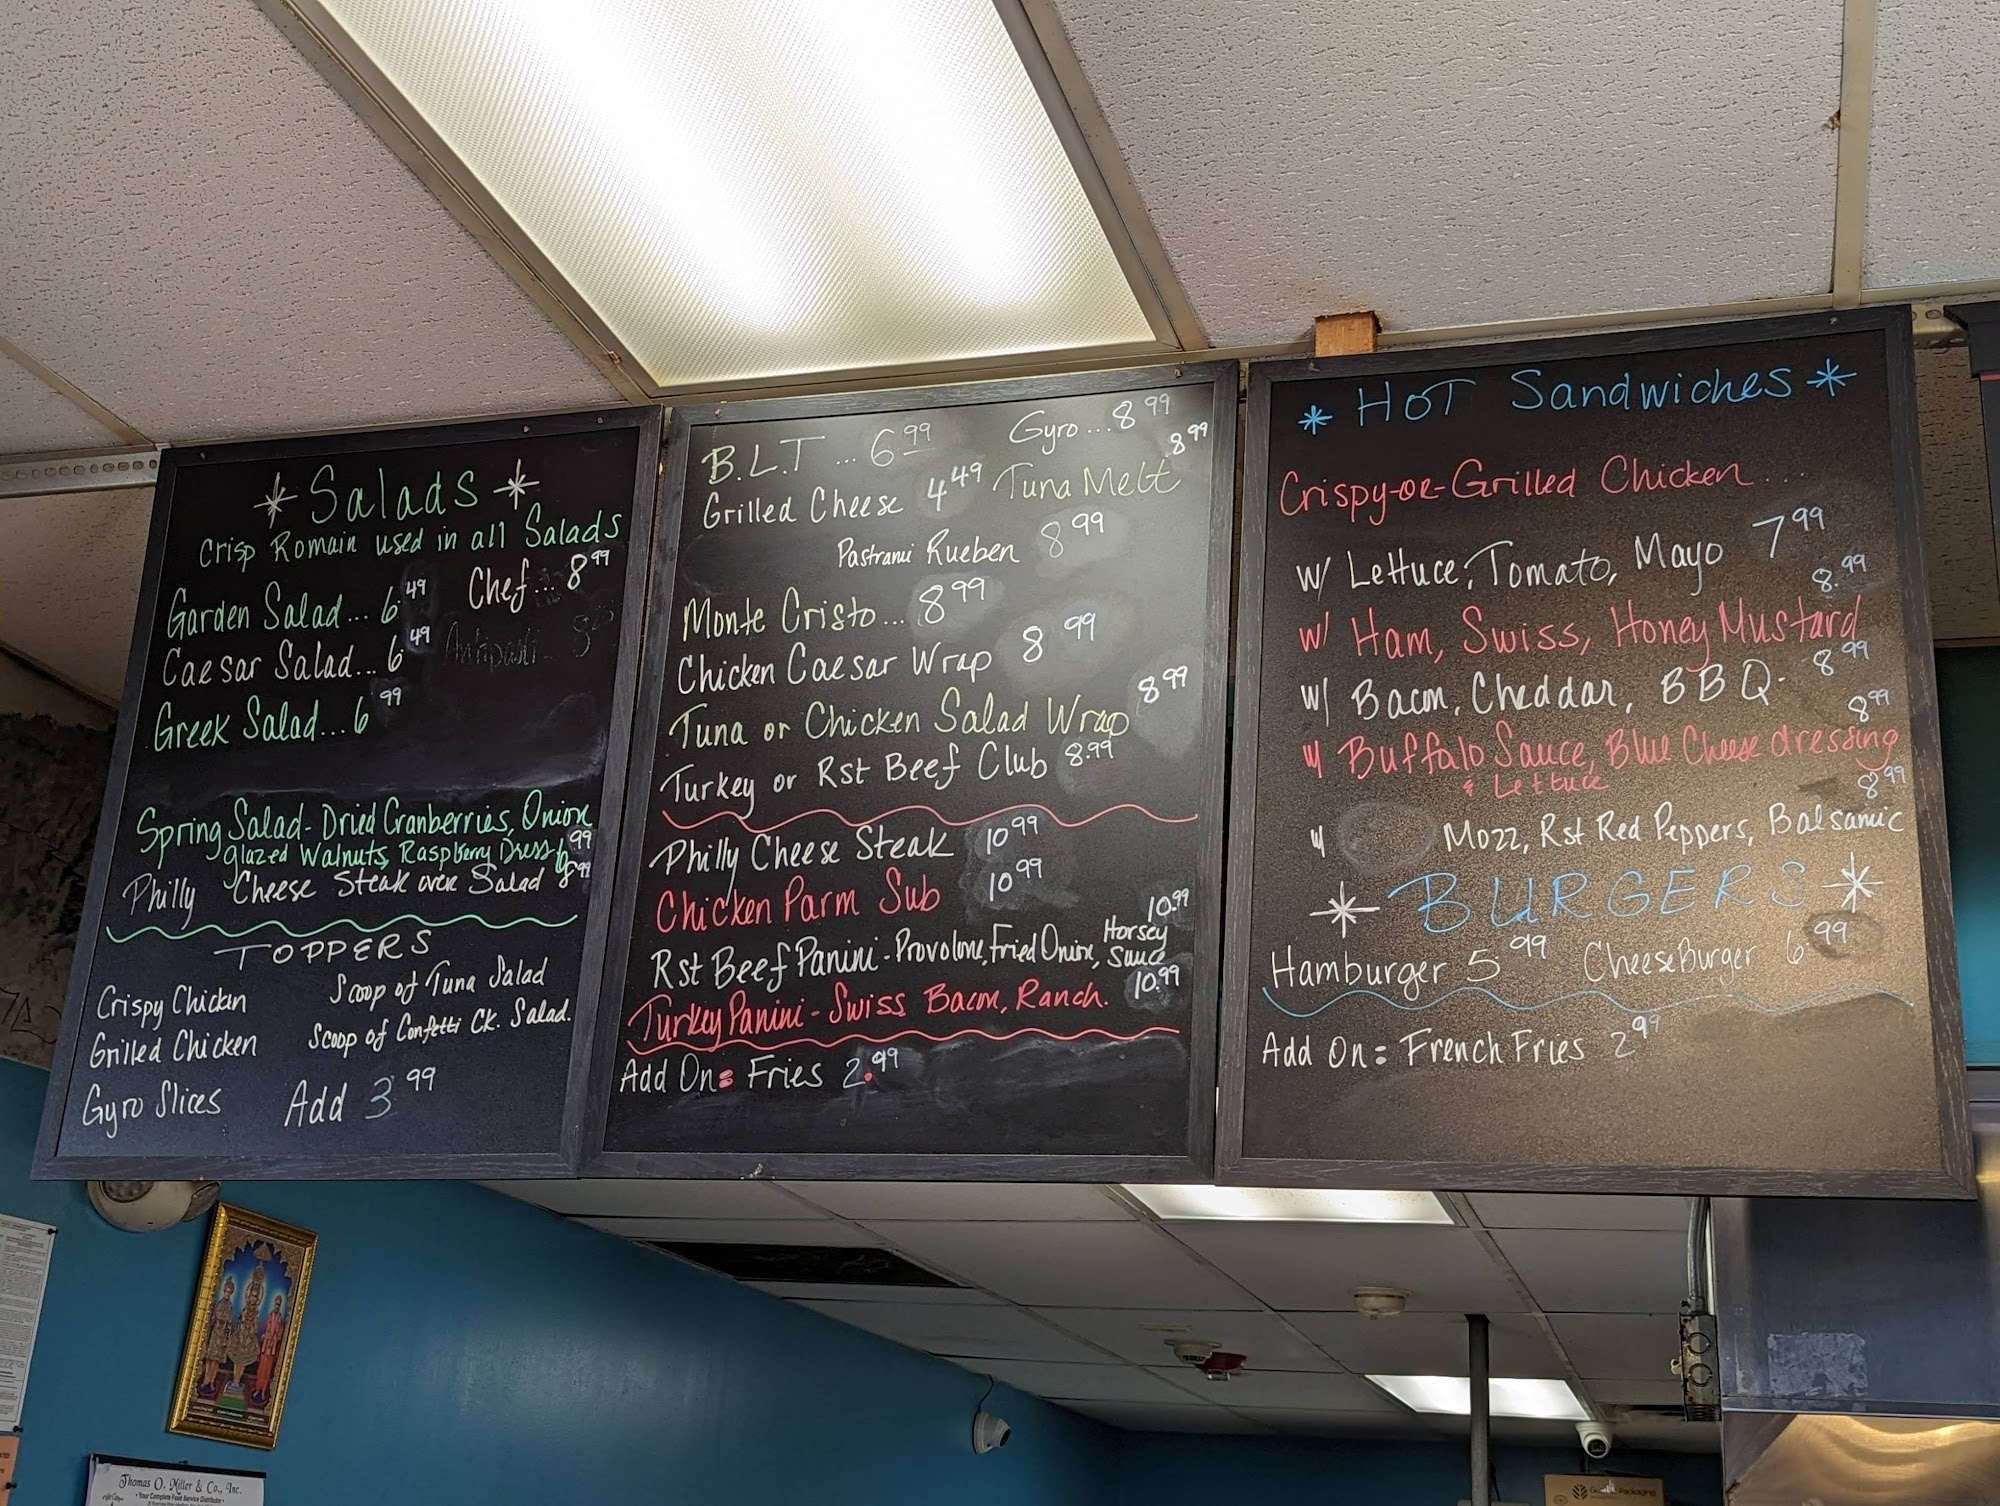 * Salads *
Crisp Romain used in all Salads
Garden Salad... 6.49
Chef... 8.99
Caesar Salad... 6.49
Antipasti...
Greek Salad... 6.99
Spring Salad - Dried Cranberries, Onion
glazed Walnuts, Raspberry Dress. 6.99
Philly Cheese Steak over Salad 8.99
TOPPERS
Crispy Chicken
Scoop of Tuna Salad
Grilled Chicken
Scoop of Confetti CK. Salad.
Gyro Slices
Add 3.99
B.L.T ... 6 99
Gyro... 8 99
Grilled Cheese 4 49
Tuna Melt 8 99
Pastrami Rueben 8 99
Monte Cristo... 8 99
Chicken Caesar Wrap 8 99
Tuna or Chicken Salad Wrap 8 99
Turkey or Rst Beef Club 8.99
Philly Cheese Steak 10 99
Chicken Parm Sub 10 99
Rst Beef Panini - Provolone, Fried Onion, Horsey Sauce 10.99
Turkey Panini - Swiss Bacon, Ranch. 10.99
Add On: Fries 2.99
* HOT Sandwiches *
Crispy-or-Grilled Chicken...
w/ Lettuce, Tomato, Mayo 7 99
w/ Ham, Swiss, Honey Mustard 8.99
w/ Bacon, Cheddar, BBQ- 8 99
w/ Buffalo Sauce, Blue Cheese dressing 8 99
& Lettuce
w/ Mozz, Rst Red Peppers, Balsamic 8 99
* BURGERS *
Hamburger 5 99 CheeseBurger 6 99
Add On: French Fries 2 99
Thomas O. Miller & Co., Inc.
• Your Complete Food Service Distributor •
Packaging